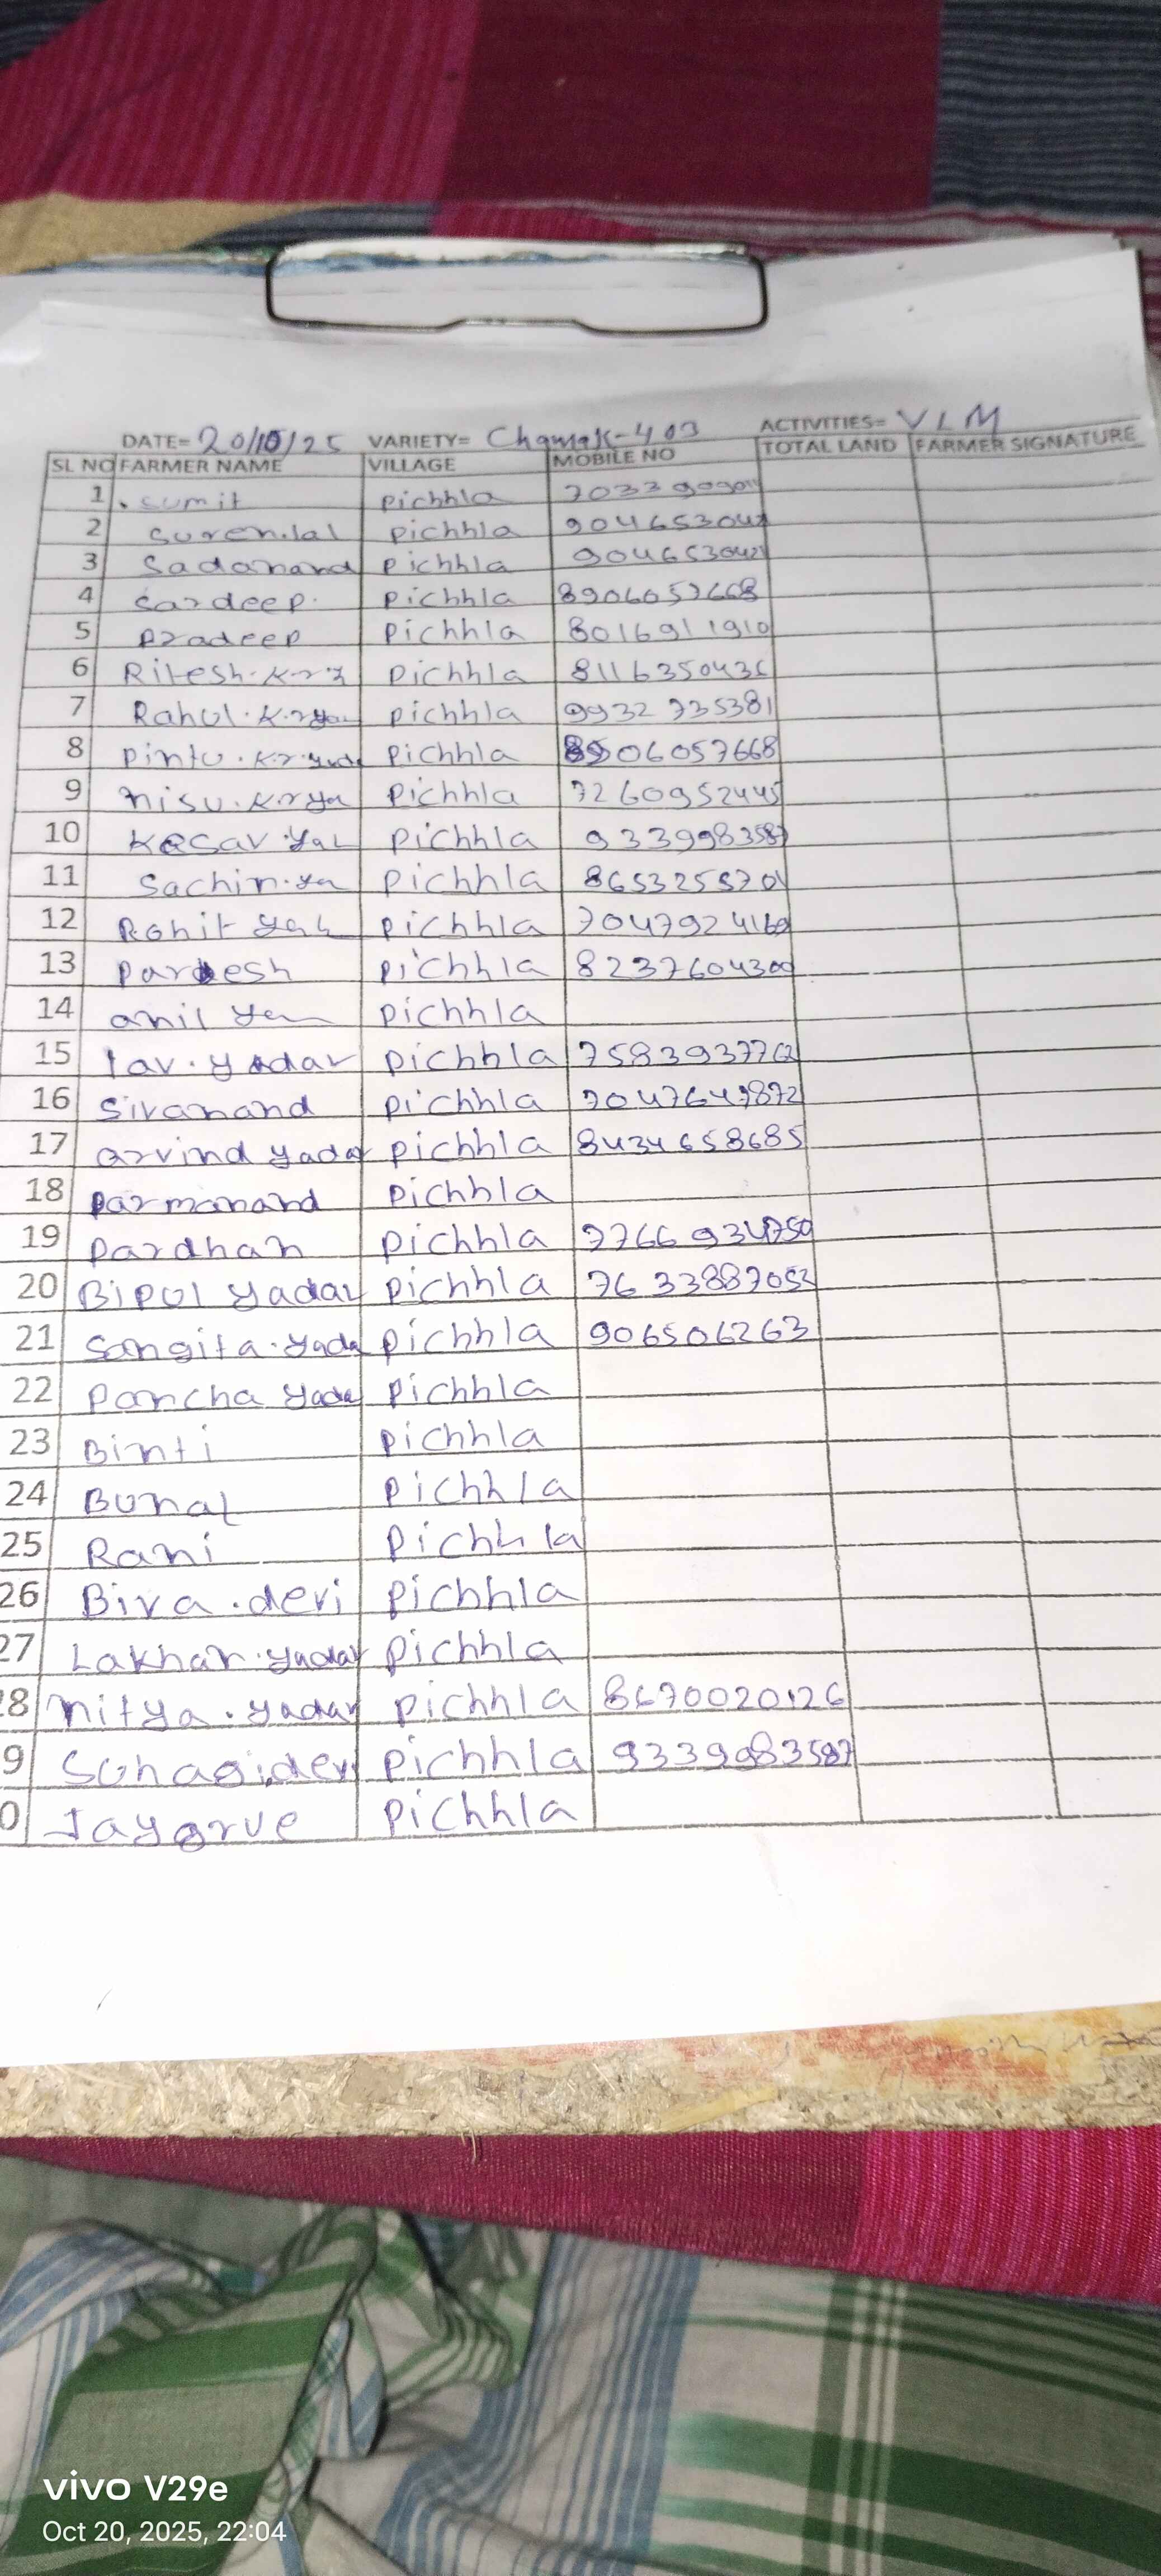 DATE= 20/10/25 VARIETY= Chamak-403 ACTIVITIES= VLM
SL NO FARMER NAME VILLAGE MOBILE NO TOTAL LAND FARMER SIGNATURE
1 sumit pichhla
2 Suren.lal pichhla 9046530421
3 Sadanand pichhla 9046530421
4 Sardeep. pichhla 8906057668
5 pradeep pichhla 8016911910
6 Ritesh. pichhla 8116350436
7 Rahul. pichhla 9932735381
8 pintu. pichhla 8906057668
9 nisu. pichhla 7260952445
10 Kesav pichhla 9339983587
11 Sachin.ya pichhla
12 Rohit pichhla 7047924169
13 pardesh pichhla 8237604300
14 anil pichhla
15 lav.yadav pichhla
16 Sivanand pichhla 7047649872
17 arvind yadav pichhla 8434658685
18 parmanand pichhla
19 pardhan pichhla 7766934750
20 Bipul yadav pichhla 7633887052
21 Sangita.yada pichhla 906506263
22 pancha yada pichhla
23 Binti pichhla
24 pichhla
25 Rani pichhla
26 Biva.devi pichhla
27 Lakhan.yadav pichhla
28 nitya.yadav pichhla 8670020126
9 Suhagidevi pichhla 9339983587
0 Jaygrue pichhla
vivo V29e
Oct 20, 2025, 22:04